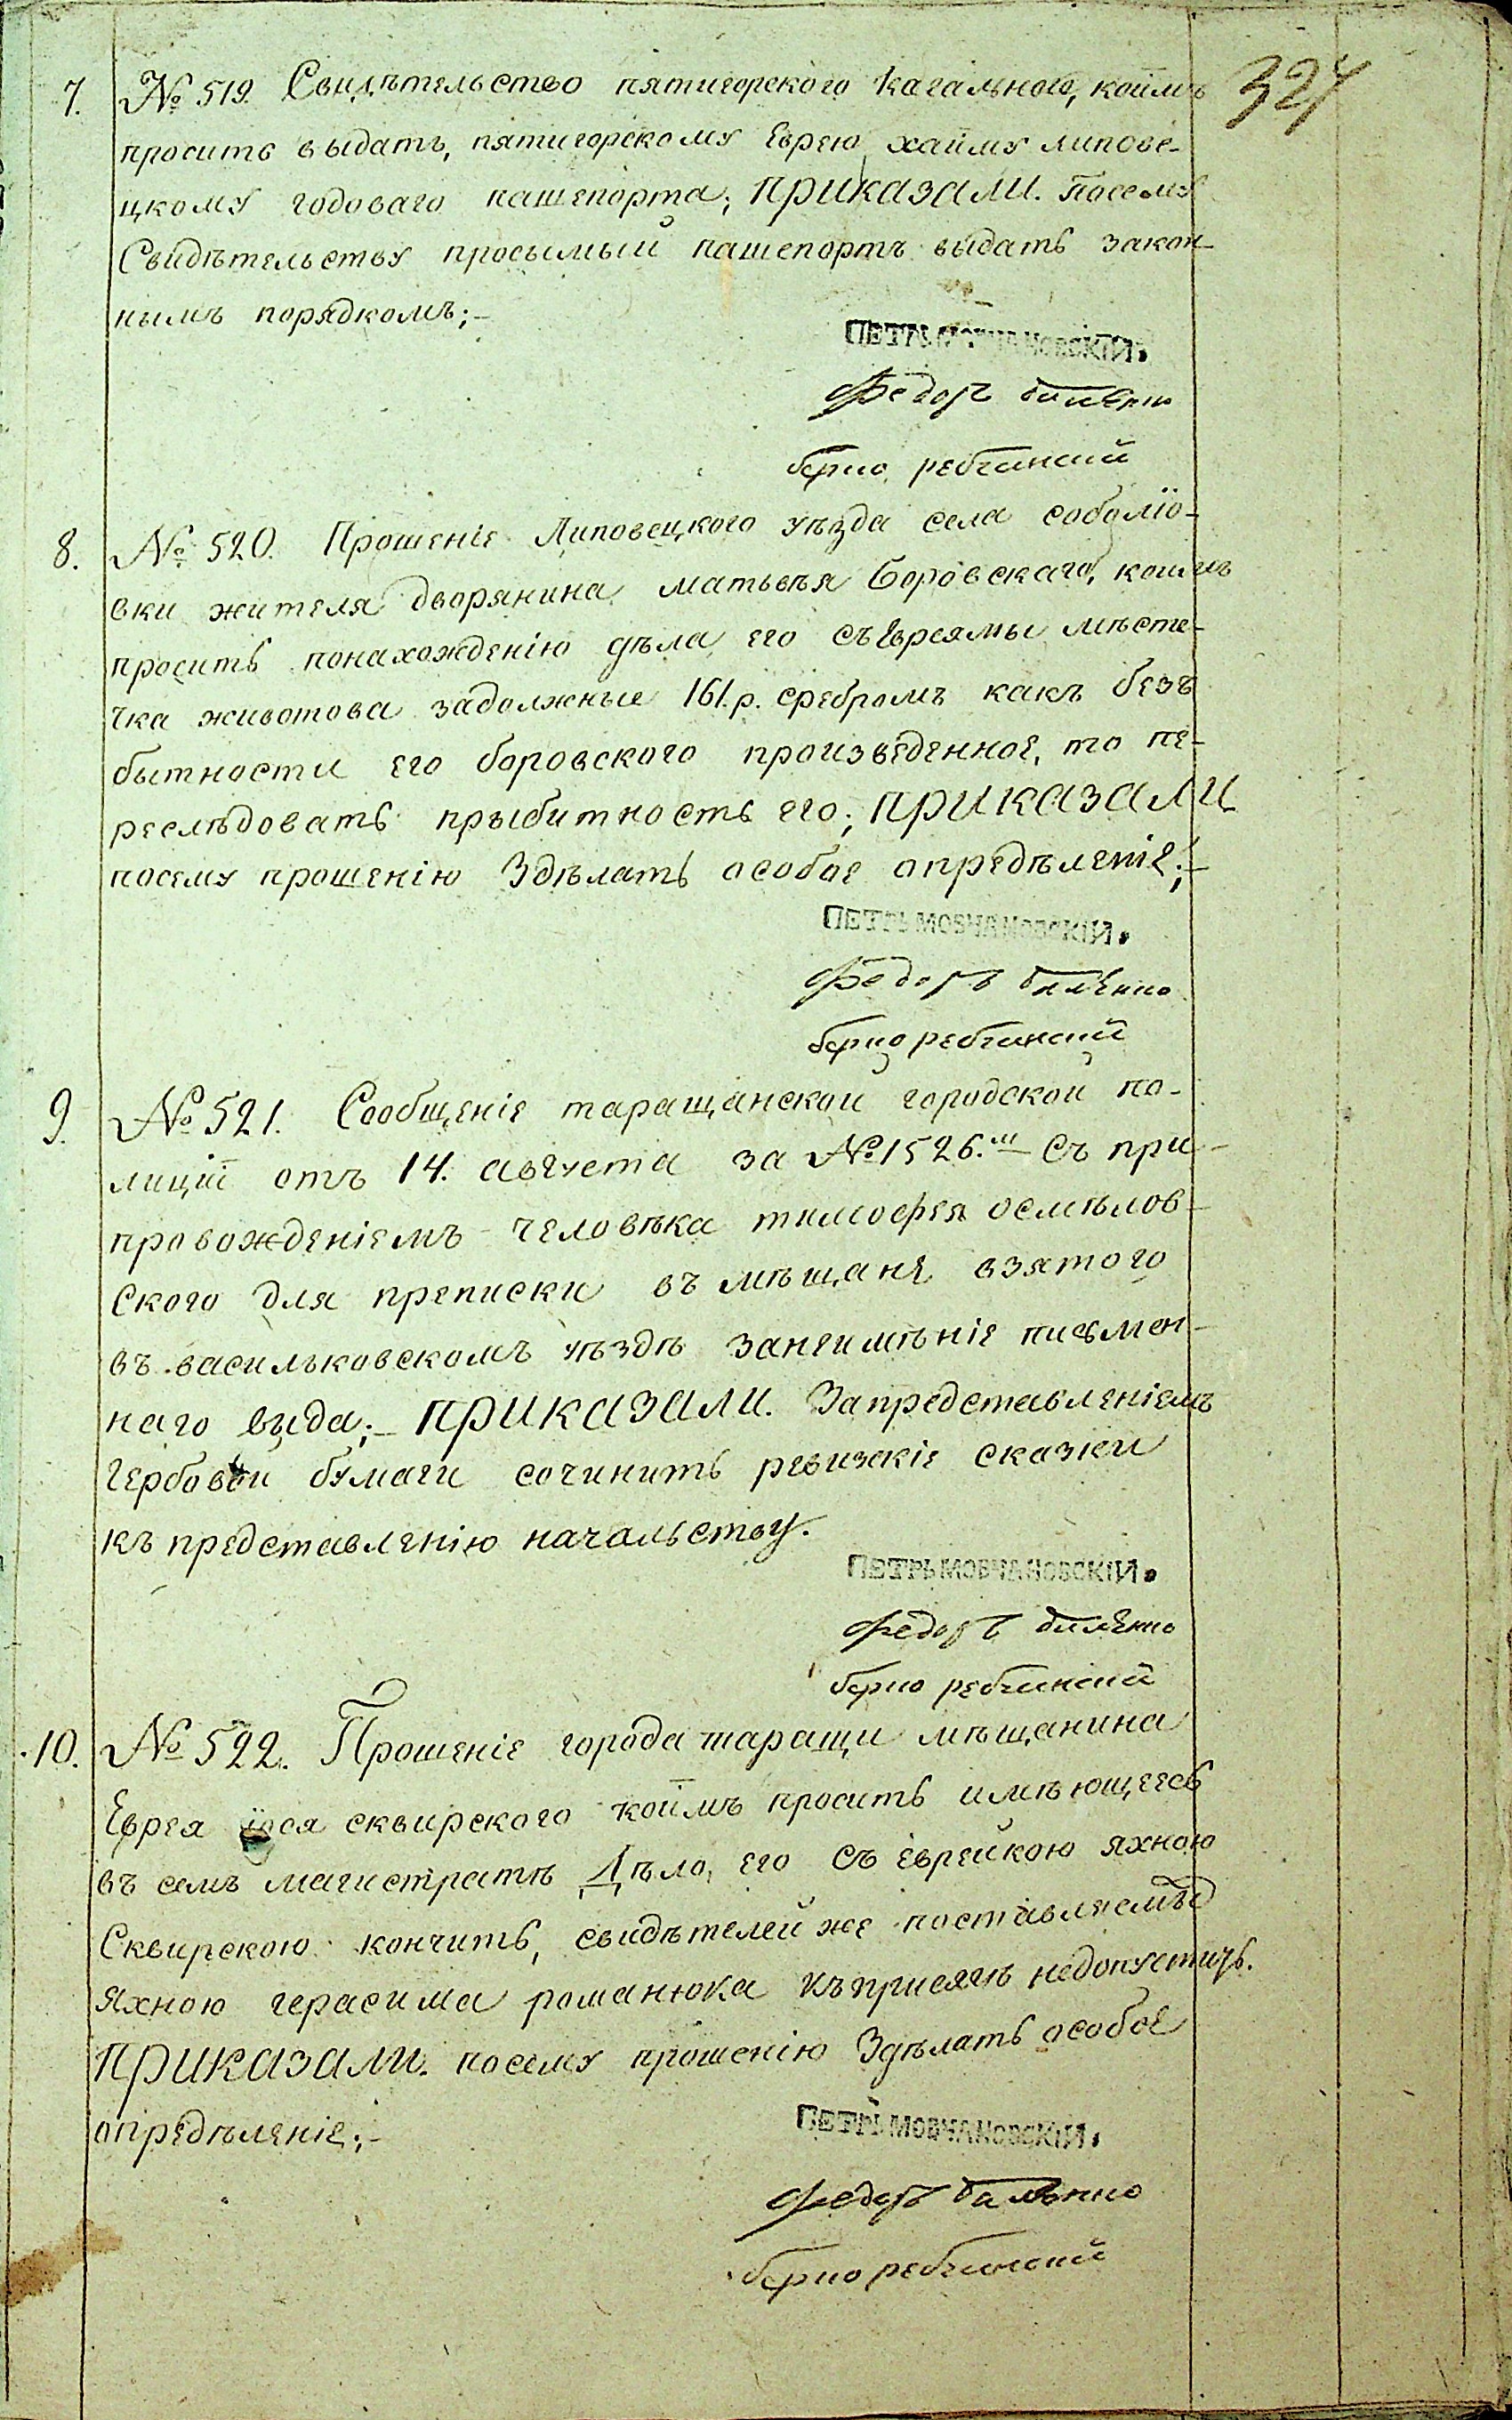 324
7. № 519. Свидѣтельство пятигорского кагального, коимъ
проситъ выдать, пятигорскому Еврею хаиму липове-
цкому годоваго пашепорта; приказали. Посему
Свидѣтельству просымый пашепортъ выдать закон-
нымъ порядкомъ;-
ПЕТРЬ МОВЧАНОВСКІЙ.
Федоръ
берко
8. № 520. Прошеніе Липовецкого уѣзда села соболіо-
вки жителя дворянина матьвѣя Боровскаго, коимъ
проситъ понахожденію дѣла его съ Евреямы мѣсте-
чка животова задолжные 161. р. сребромъ какъ безъ
бытности его боровского произведенное, то пе-
реслѣдовать прыбитность его; приказали
посему прошенію Здѣлать особое опредѣленіе;-
ПЕТРЬ МОВЧАНОВСКІЙ.
Федоръ
берко
9. № 521. Сообщеніе таращанской городской по-
лиціи отъ 14. августа за № 1526.м Съ при-
провожденіемъ человѣка тимофея осмѣлов-
ского для преписки въ мѣщане взятого
въ васильковскомъ уѣздѣ занеимѣніе письмен-
наго вида;- приказали. Запредставленіемъ
гербовой бумаги сочинить ревизкіе сказки
къ представленію начальству.
ПЕТРЬ МОВЧАНОВСКІЙ.
Федоръ
берко
10. № 522. Прошеніе города таращи мѣщанина
Еврея іося сквирского коимъ проситъ имѣющееся
въ семъ магистратѣ Дѣло, его съ еврейкою яхною
Сквирскою кончить, свидѣтелей же поставляемыхъ
яхною герасима романюка къ присягѣ недопустить.
приказали. посему прошенію Здѣлать особое
опредѣленіе;-
ПЕТРЬ МОВЧАНОВСКІЙ.
Федоръ
берко